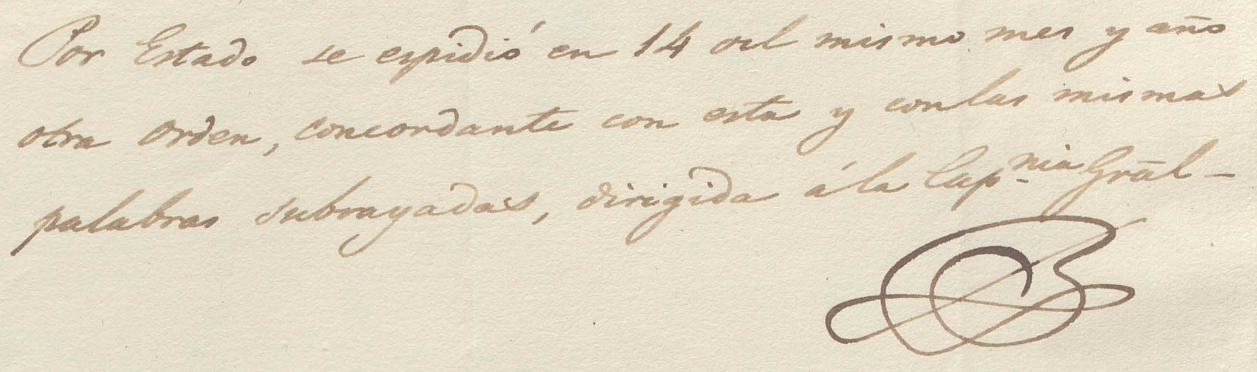 Por Estado se espidió en 14 del mismo mes y año
otra orden, concordante con esta y con las mismas
palabras subrayadas, dirigida á la Cap.nia Grãl –